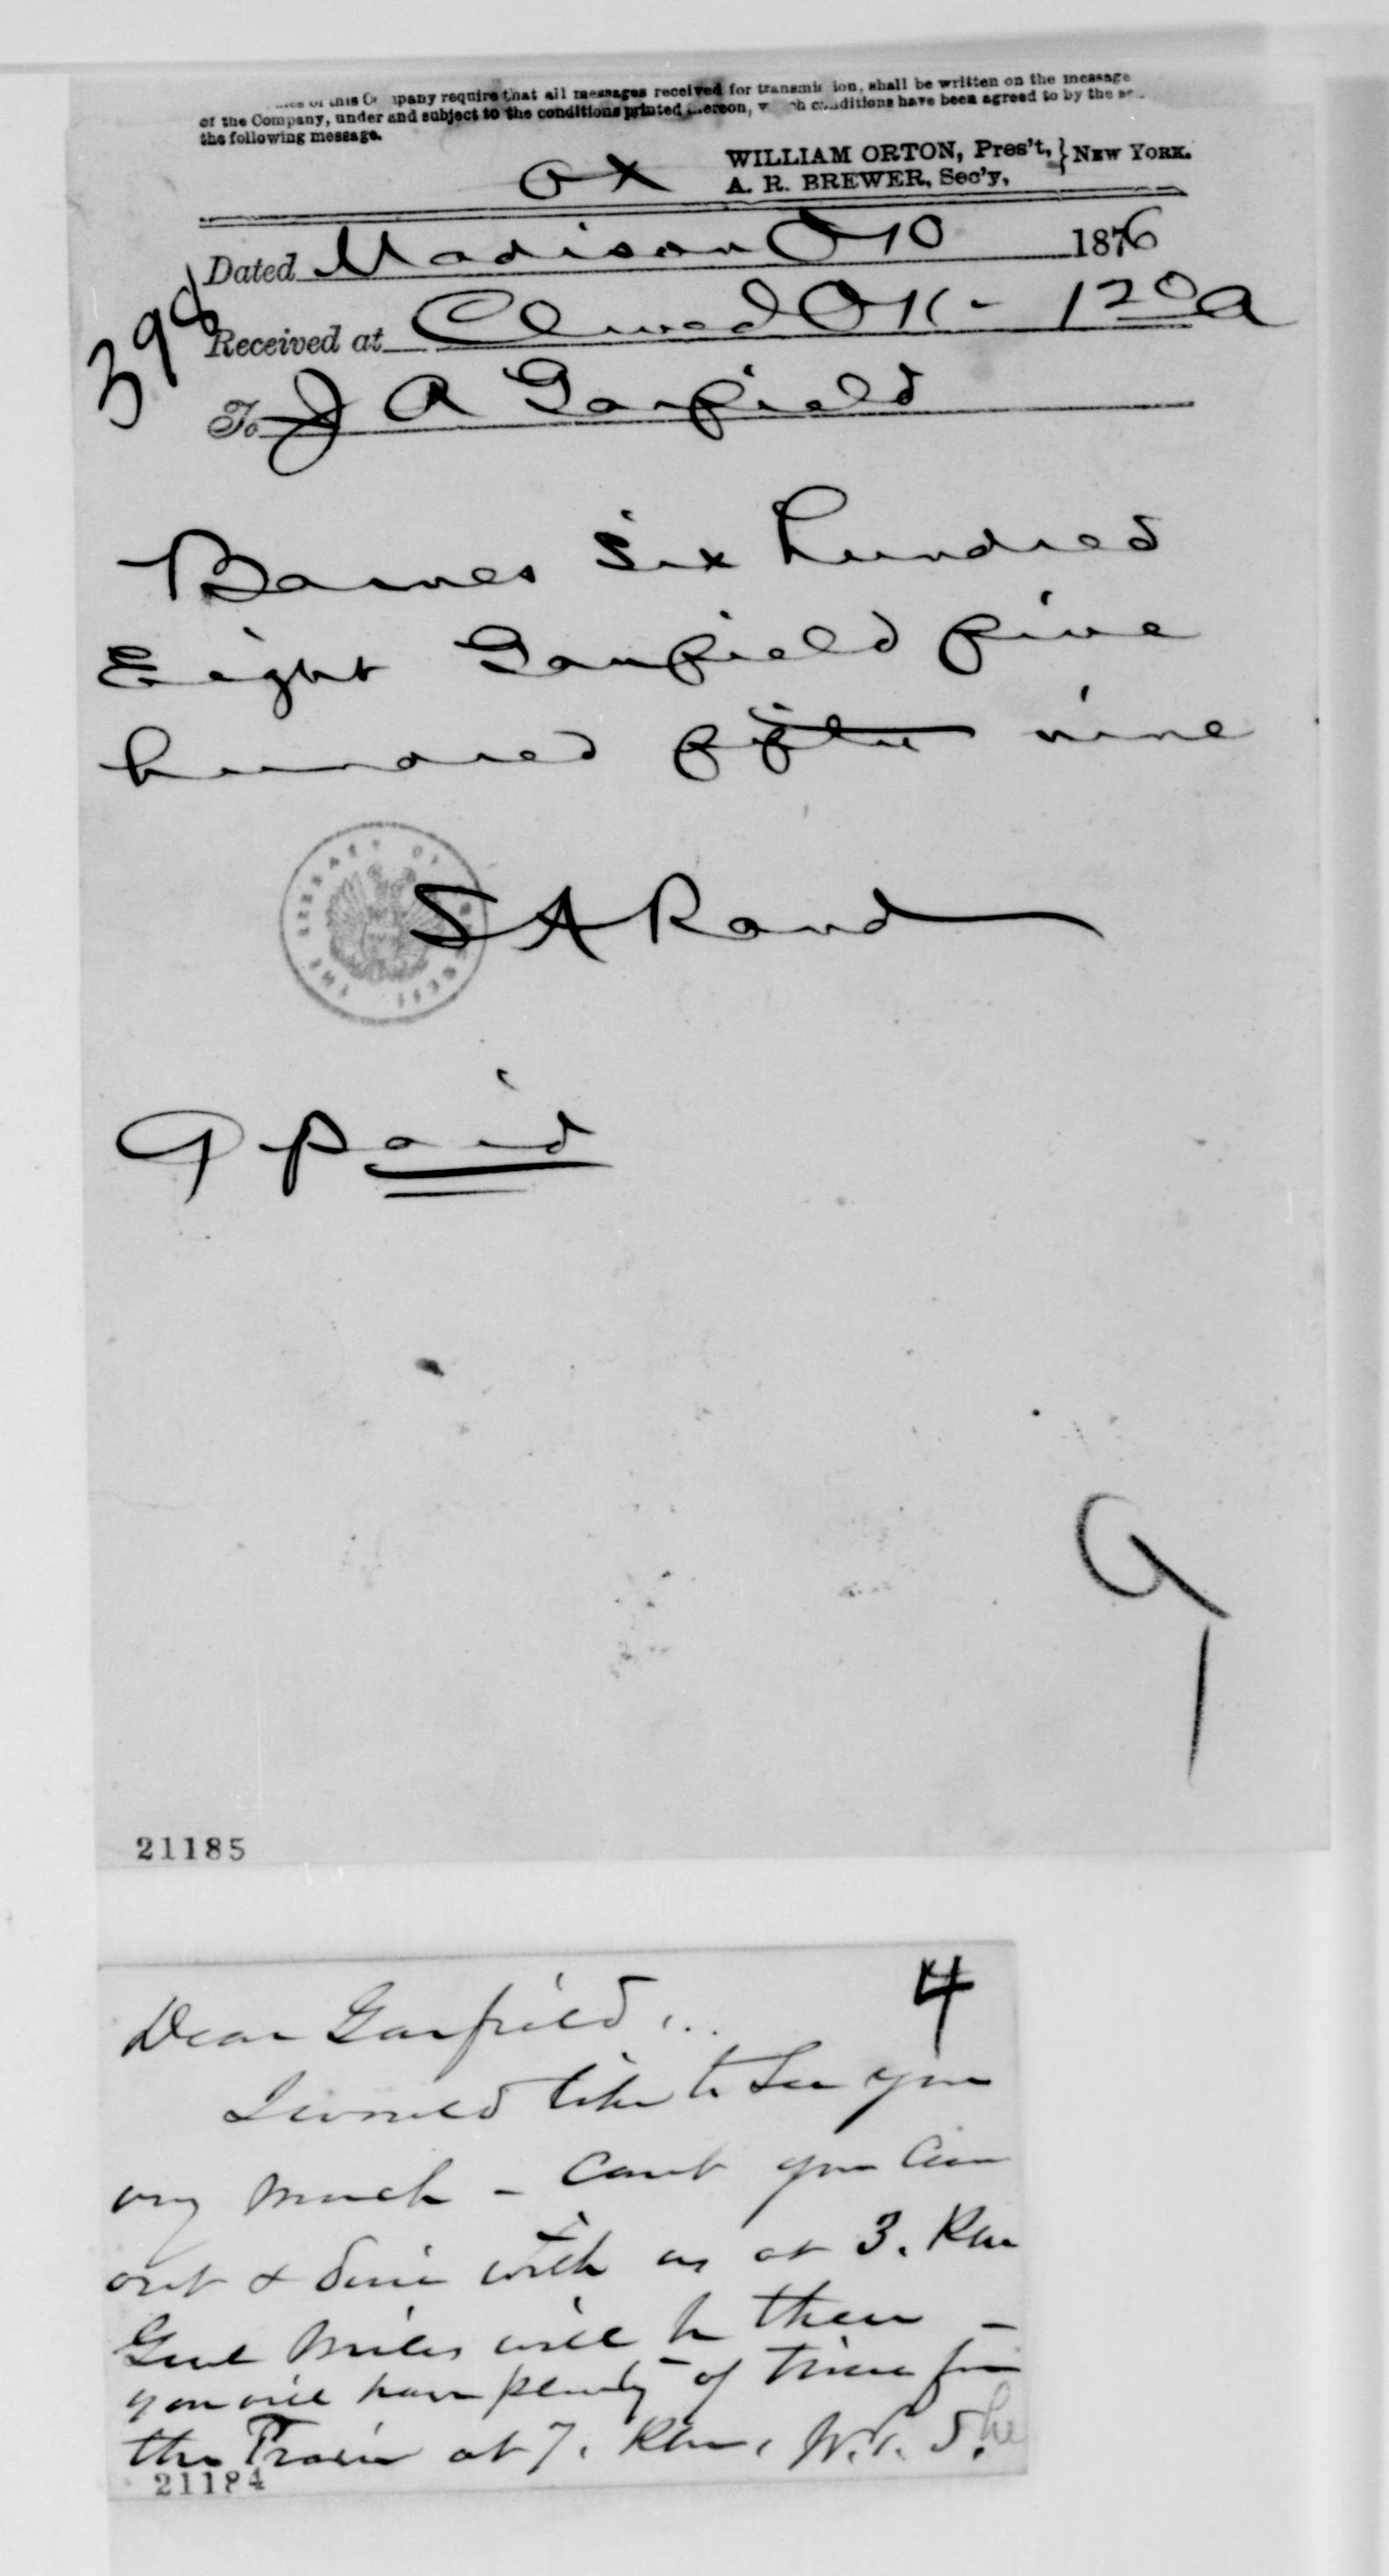 of this Company require that all messages received for transmission, shall be written on the message
of the Company, under and subject to the conditions printed thereon, which conditions have been agreed to by the
the following message.
WILLIAM ORTON, Pres't,
A. R. BREWER, Sec'y,
} NEW YORK.
Dated Madison O 10 1876
398
Received at Cleved O 11 - 120 a
To J A Garfield
Barnes six hundred
Eight Garfield five
hundred fifty nine
S A Rand
9 paid
21185
4
Dear Garfield
I would like to see you
very much - Cant you Come
out & dine with us at 3. P.M.
Genl Miles will be there -
you will have plenty of time for
the Train at 7. P.M.
21184